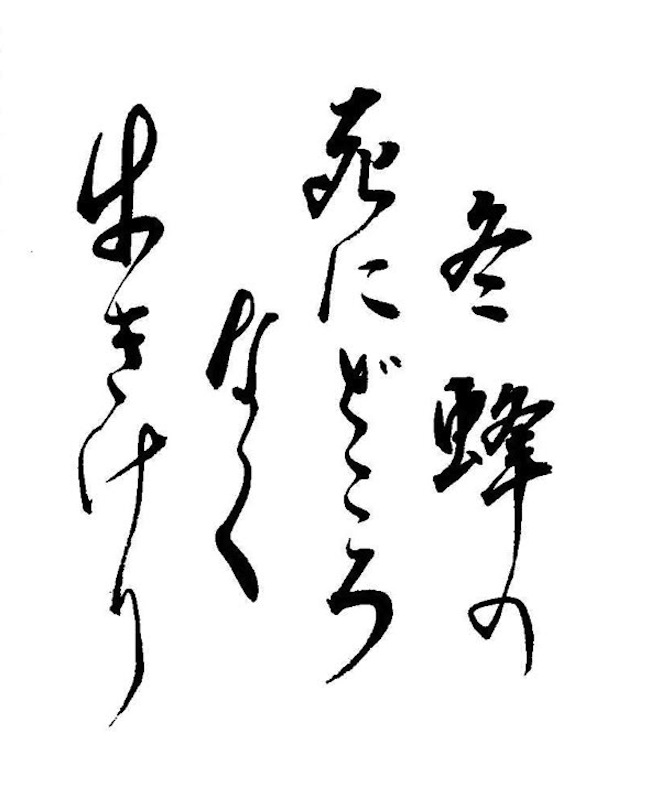 冬蜂の
死にどころ
なく
歩きけり